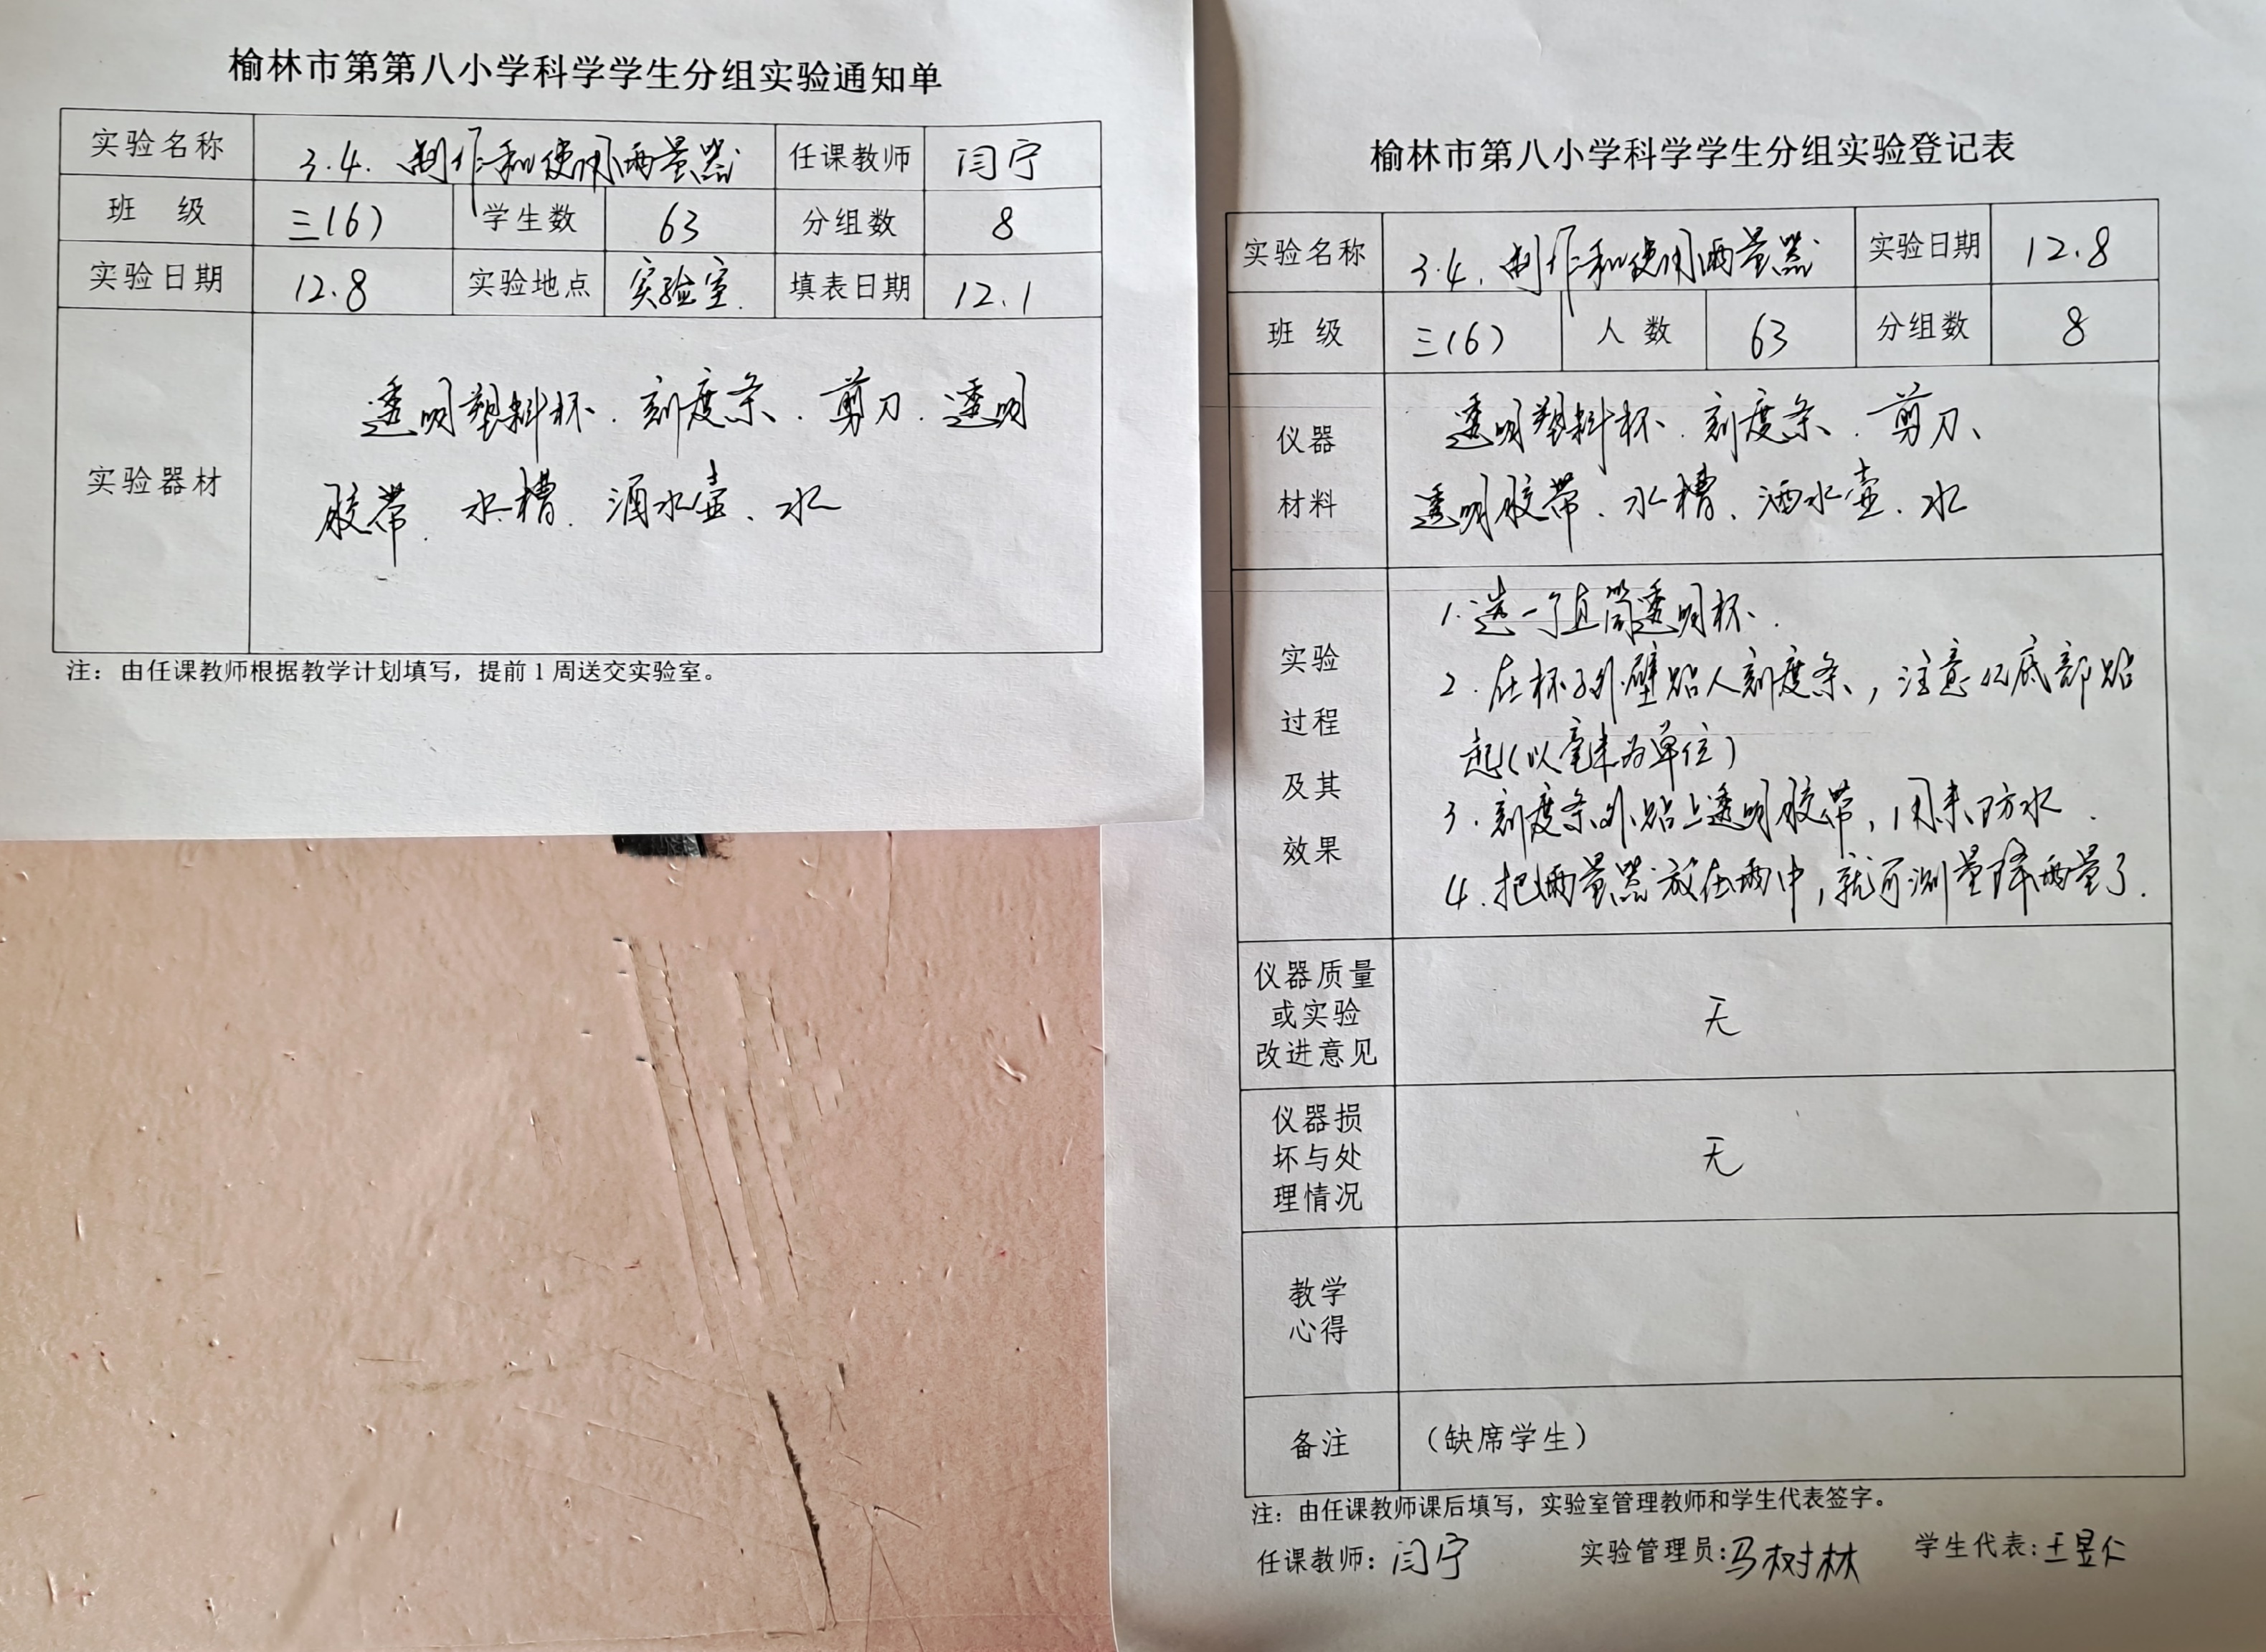 榆林市第第八小学科学学生分组实验通知单
实验名称 3.4.制作和使用雨量器 任课教师 闫宁
班 级 三(6) 学生数 63 分组数 8
实验日期 12.8 实验地点 实验室. 填表日期 12.1
实验器材
透明塑料杯、刻度条、剪刀、透明
胶带、水槽、洒水壶、水
注：由任课教师根据教学计划填写，提前1周送交实验室。
榆林市第八小学科学学生分组实验登记表
实验名称 3.4.制作和使用雨量器 实验日期 12.8
班 级 三(6) 人 数 63 分组数 8
仪器
材料
透明塑料杯、刻度条、剪刀、
透明胶带、水槽、洒水壶、水
实验
过程
及其
效果
1.选一个直筒透明杯.
2.在杯子外壁贴上刻度条，注意从底部贴
起(以毫米为单位)
3.刻度条外贴上透明胶带，用来防水.
4.把雨量器放在雨中，就可测量降雨量了.
仪器质量
或实验
改进意见
无
仪器损
坏与处
理情况
无
教学
心得
备注 （缺席学生）
注：由任课教师课后填写，实验室管理教师和学生代表签字。
任课教师：闫宁 实验管理员：马树林 学生代表：王昱仁